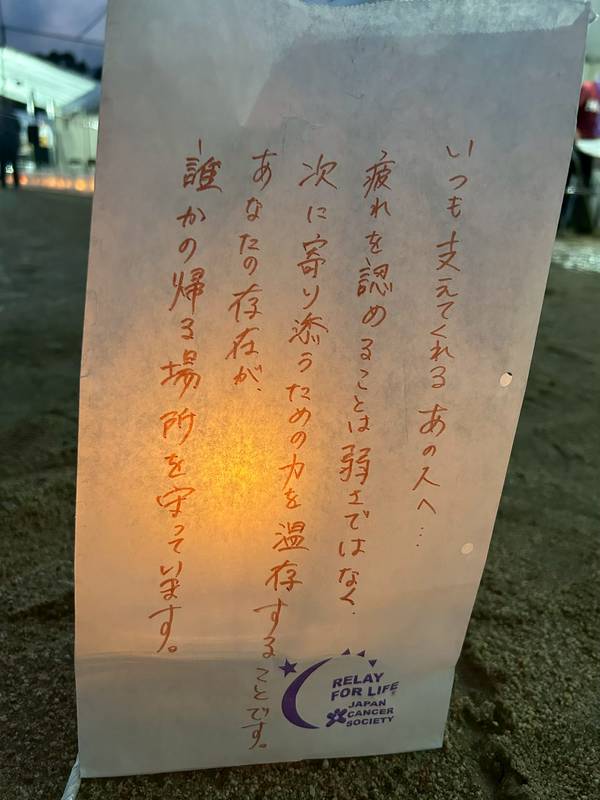 いつも支えてくれるあの人へ…
疲れを認めることは弱さではなく、
次に寄り添うための力を温存することです。
あなたの存在が、
誰かの帰る場所を守っています。
RELAY
FOR LIFE
JAPAN
CANCER
SOCIETY